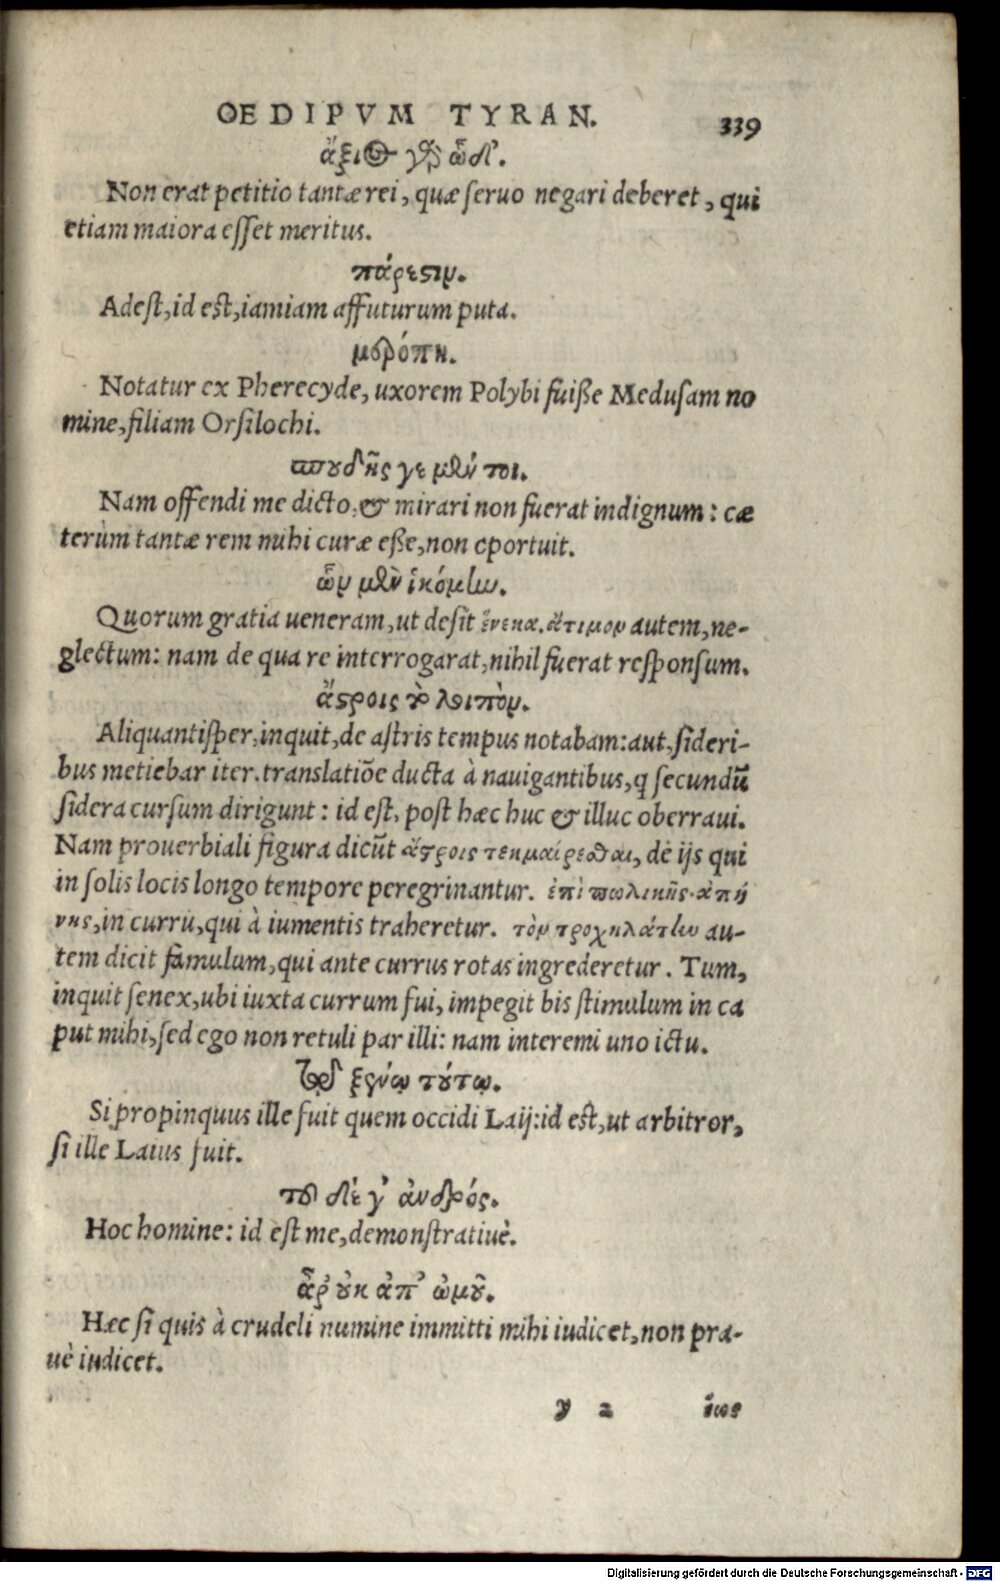 OEDIPVM TYRAN. 339
ἄξιος γὰρ ὧδ'.
Non erat petitio tantæ rei, quæ seruo negari deberet, qui
etiam maiora esset meritus.
πάρεστιν.
Adest, id est, iamiam affuturum puta.
μερόπη.
Notatur ex Pherecyde, uxorem Polybi fuisse Medusam no
mine, filiam Orsilochi.
σπουδῆς γε μέν τοι.
Nam offendi me dicto, & mirari non fuerat indignum: cæ
terùm tantæ rem mihi curæ esse, non oportuit.
ὧν μὲν ἱκόμην.
Quorum gratia ueneram, ut desit ἕνεκα. ἄτιμον autem, ne-
glectum: nam de qua re interrogarat, nihil fuerat responsum.
ἄστροις τὸ λοιπὸν.
Aliquantisper, inquit, de astris tempus notabam: aut, sideri-
bus metiebar iter. translatiōe ducta à nauigantibus, q secundū
sidera cursum dirigunt: id est, post hæc huc & illuc oberraui.
Nam prouerbiali figura dicūt ἄστροις τεκμαίρεσθαι, de ijs qui
in solis locis longo tempore peregrinantur. ἐπὶ πωλικῆς ἀπή
νης, in curru, qui à iumentis traheretur. τὸν τροχηλάτην au-
tem dicit famulum, qui ante currus rotas ingrederetur. Tum,
inquit senex, ubi iuxta currum fui, impegit bis stimulum in ca
put mihi, sed ego non retuli par illi: nam interemi uno ictu.
τῷ ξένῳ τούτῳ.
Si propinquus ille fuit quem occidi Laij: id est, ut arbitror,
si ille Laius fuit.
τοῦ δέ γ' ἀνδρός.
Hoc homine: id est me, demonstratiuè.
ἆρ' οὐκ ἀπ' ὠμοῦ.
Hæc si quis à crudeli numine immitti mihi iudicet, non pra-
uè iudicet.
y 2 ἴως
Digitalisierung gefördert durch die Deutsche Forschungsgemeinschaft - DFG